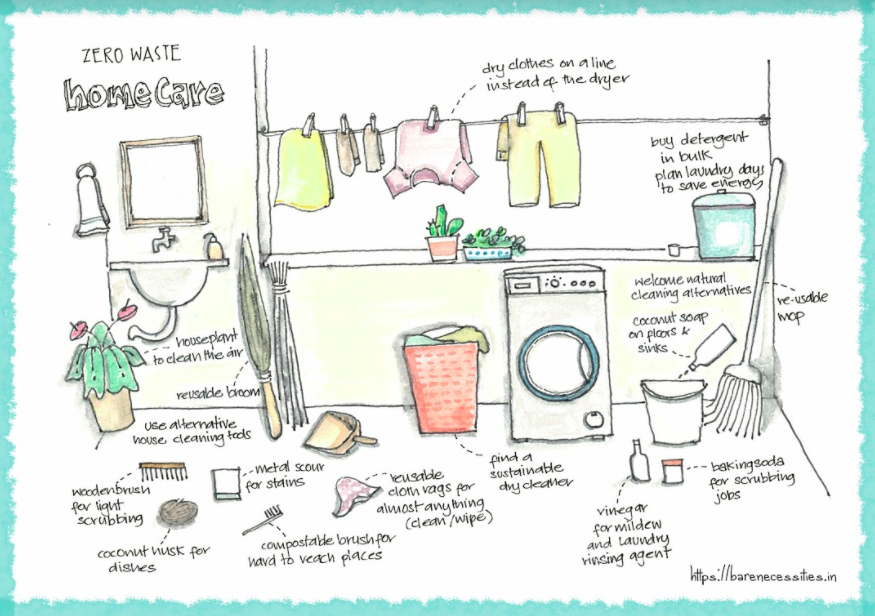 ZERO WASTE
home Care
dry clothes on a line
instead of the dryer
buy detergent
in bulk
plan laundry days
to save energy
welcome natural
cleaning alternatives
re-usable
mop
coconut soap
on floors &
sinks
houseplant
to clean the air
reusable broom
use alternative
house cleaning tools
wooden brush
for light
scrubbing
metal scour
for stains
reusable
cloth rags for
almost anything
(clean/wipe)
find a
sustainable
dry cleaner
baking soda
for scrubbing
jobs
vinegar
for mildew
and laundry
rinsing agent
coconut husk for
dishes
compostable brush for
hard to reach places
https://barenecessities.in